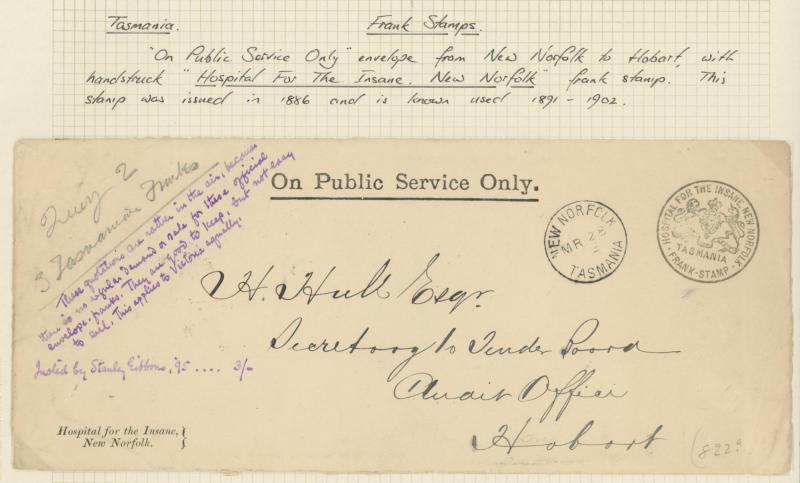 Tasmania. Frank Stamps.
"On Public Service Only" envelope from New Norfolk to Hobart, with
handstruck "Hospital For The Insane. New Norfolk" frank stamp. This
stamp was issued in 1886 and is known used 1891 - 1902.
On Public Service Only.
2
3 Tasmanian Franks
These quotations are rather in the air, because
there is no regular demand or sale for these official
envelope-franks. They are good to keep, but not easy
to sell. This applies to Victoria equally.
Listed by Stanley Gibbons, '95 .... 3/-
NEW NORFOLK
MR 2
TASMANIA
HOSPITAL FOR THE INSANE NEW NORFOLK
TASMANIA
FRANK-STAMP
H. Hull Esqr.
Secretary to Tender Board
Audit Office
Hobart
Hospital for the Insane,
New Norfolk.